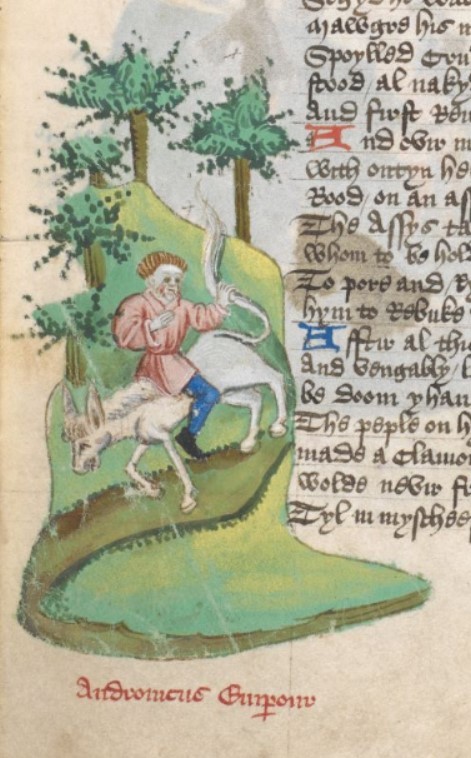 Malwgre his
Spoylled
stood / al naky
And first
And ovir
With ontyn he
Rood / on an ass
The Assys ta
Whom to be hol
To pore and
hym to Rebuke
Afftir al this
And vengably
be doom yhau
The peple on h
made a Clamor
Wolde nevir
Tyl in myschee
Andronicus Emperour